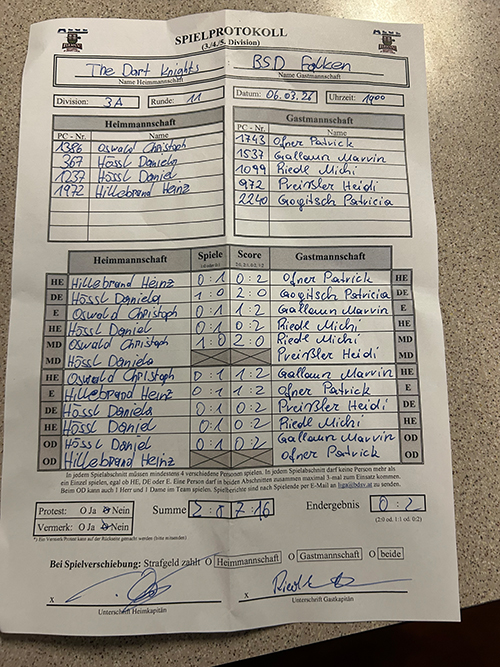 SPIELPROTOKOLL
(3./4./5. Division)
The Dart Knights BSD Falken
Name Heimmannschaft Name Gastmannschaft
Division: 3A Runde: 11 Datum: 06.03.26 Uhrzeit: 1900
Heimmannschaft Gastmannschaft
PC - Nr. Name PC - Nr. Name
1386 Oswald Christoph 1743 Ofner Patrick
367 Hössl Daniela 1537 Gallaun Marvin
1237 Hössl Daniel 1099 Riedl Michi
1972 Hillebrand Heinz 972 Preißler Heidi
2240 Gogitsch Patricia
Heimmannschaft Spiele Score Gastmannschaft
HE Hillebrand Heinz 0:1 0:2 Ofner Patrick HE
DE Hössl Daniela 1:0 2:0 Gogitsch Patricia DE
E Oswald Christoph 0:1 1:2 Gallaun Marvin E
HE Hössl Daniel 0:1 0:2 Riedl Michi HE
MD Oswald Christoph 1:0 2:0 Riedl Michi MD
MD Hössl Daniela Preißler Heidi MD
HE Oswald Christoph 0:1 1:2 Gallaun Marvin HE
E Hillebrand Heinz 0:1 1:2 Ofner Patrick E
DE Hössl Daniela 0:1 0:2 Preißler Heidi DE
HE Hössl Daniel 0:1 0:2 Riedl Michi HE
OD Hössl Daniel 0:1 0:2 Gallaun Marvin OD
OD Hillebrand Heinz Ofner Patrick OD
In jedem Spielabschnitt müssen mindestens 4 verschiedene Personen spielen. In jedem Spielabschnitt darf keine Person mehr als
ein Einzel spielen, egal ob HE, DE oder E. Eine Person darf in beiden Abschnitten zusammen maximal 3-mal zum Einsatz kommen.
Beim OD kann auch 1 Herr und 1 Dame im Team spielen. Spielberichte sind nach Spielende per E-Mail an liga@bdsv.at zu senden.
Protest: O Ja Nein Summe 2:8 7:16 Endergebnis 0:2
Vermerk: O Ja Nein (2:0 od. 1:1 od. 0:2)
Bei Spielverschiebung: Strafgeld zahlt O Heimmannschaft O Gastmannschaft O beide
x x Riedl
Unterschrift Heimkapitän Unterschrift Gastkapitän